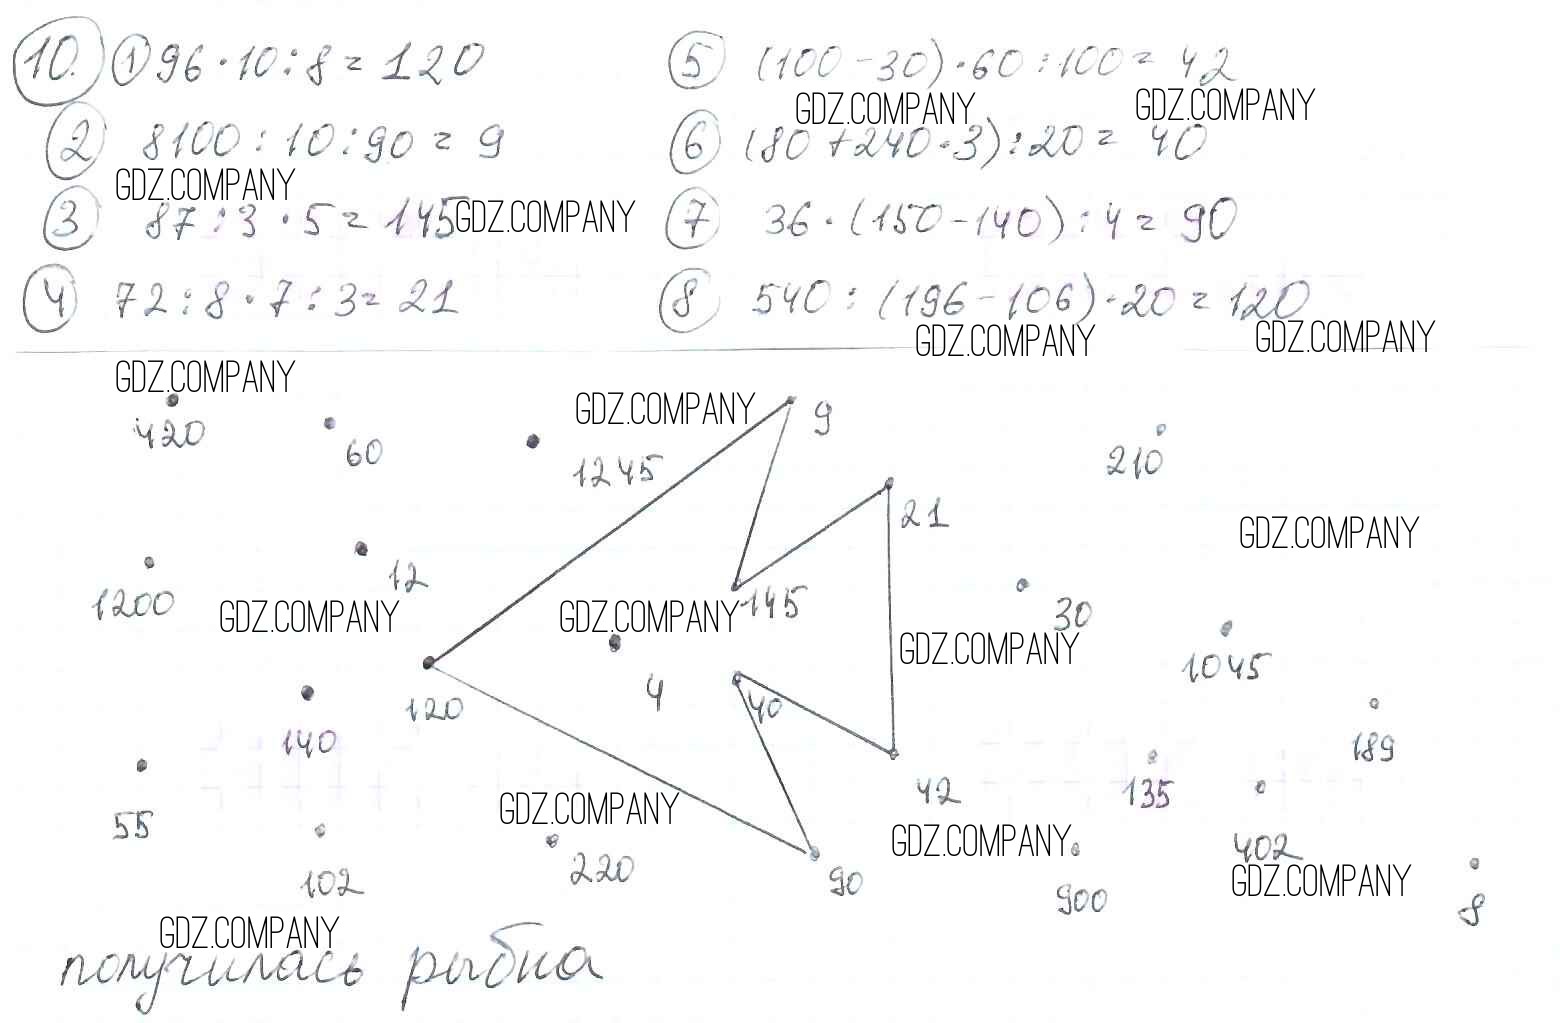 10. ① 96 · 10 : 8 = 120
② 8100 : 10 : 90 = 9
③ 87 : 3 · 5 = 145
④ 72 : 8 · 7 : 3 = 21
⑤ (100 - 30) · 60 : 100 = 42
⑥ (80 + 240 · 3) : 20 = 40
⑦ 36 · (150 - 140) : 4 = 90
⑧ 540 : (196 - 106) · 20 = 120
GDZ.COMPANY
GDZ.COMPANY
GDZ.COMPANY
GDZ.COMPANY
GDZ.COMPANY
GDZ.COMPANY
GDZ.COMPANY
GDZ.COMPANY
420
60
1245
9
210
21
GDZ.COMPANY
1200
12
145
30
GDZ.COMPANY
GDZ.COMPANY
GDZ.COMPANY
1045
120
4
40
140
189
42
135
55
GDZ.COMPANY
GDZ.COMPANY
402
102
220
90
900
GDZ.COMPANY
8
GDZ.COMPANY
получилась рыбка